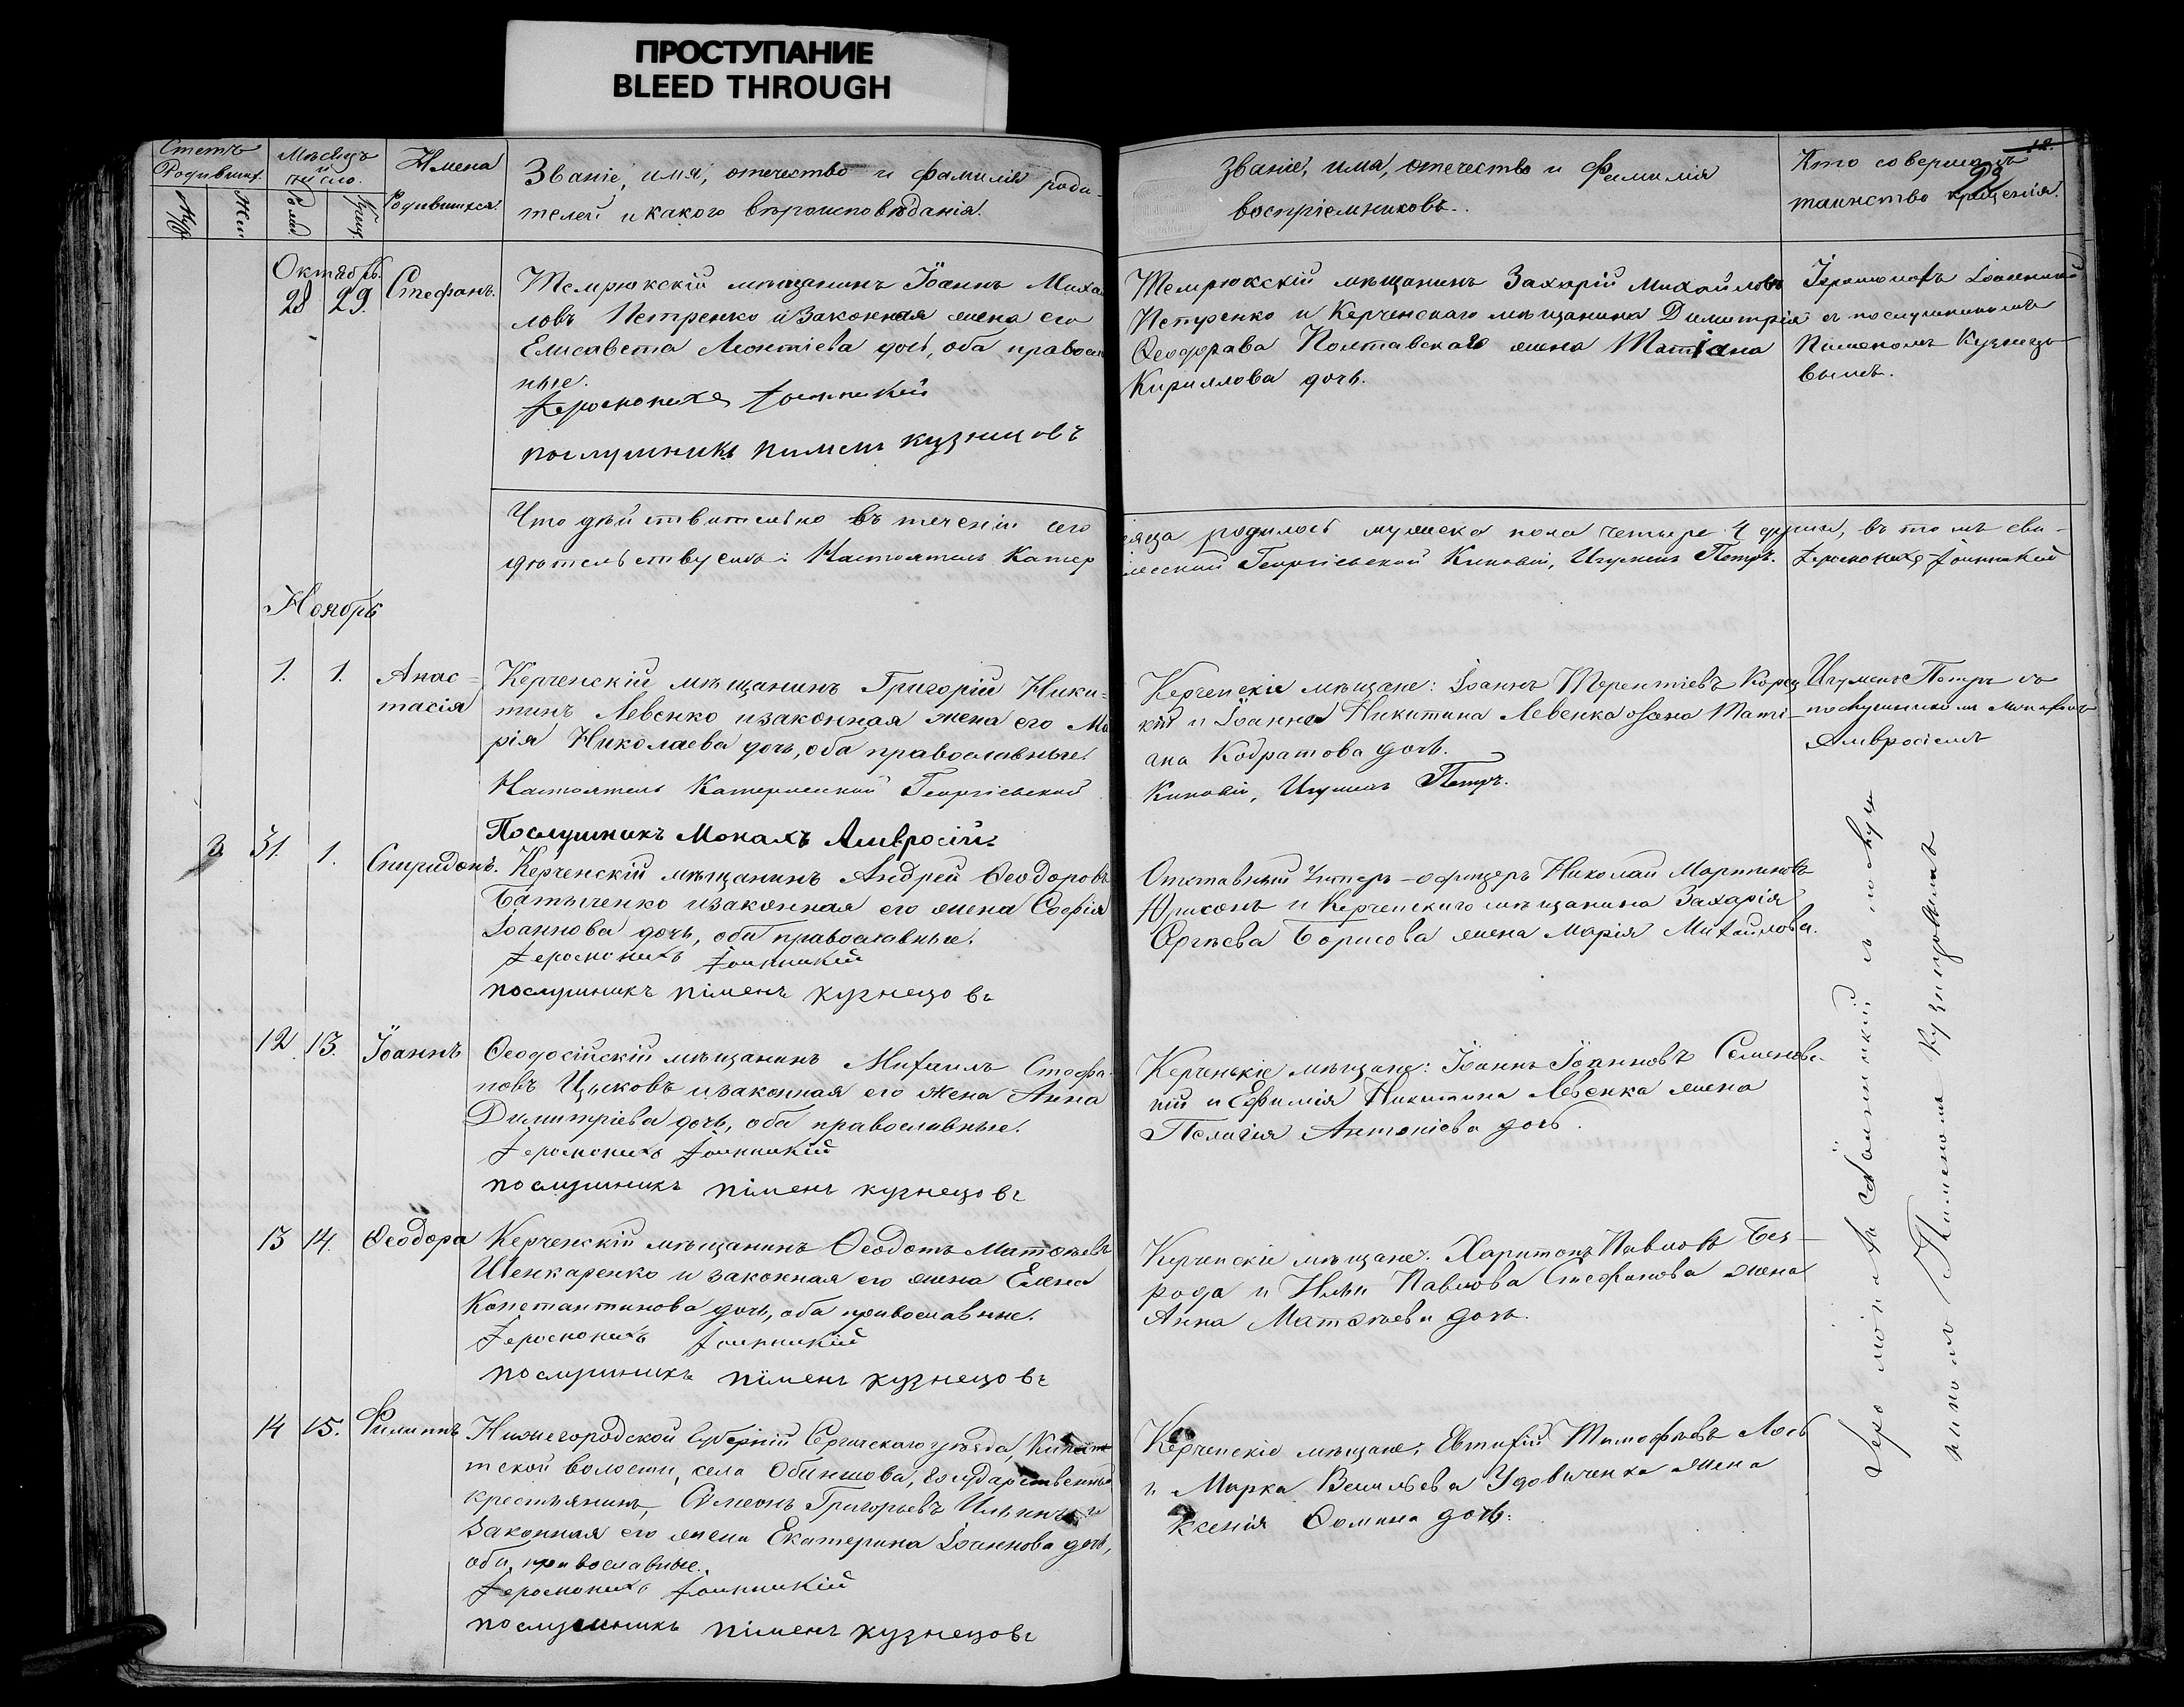 ПРОСТУПАНИЕ
BLEED THROUGH
Счетъ Родившихъ.
Муж. Жен.
Мѣсяцъ и число.
Рожд. Крещ.
Имена Родившихся.
Званіе, имя, отечество и фамилія роди-
телей и какого вѣроисповѣданія.
Званіе, имя, отечество и Фамилія
воспріемниковъ.
Кто совершалъ
таинство крещенія.
Октябрь.
28 29. Стефанъ.
Темрюкскій мѣщанинъ Іоаннъ Михай
ловъ Петренко и законная жена его
Елисавета Леонтіева дочь, оба правосл
ные.
Іеромонахъ Іоанникій
послушникъ пименъ кузнецовъ
Темрюкскій мѣщанинъ Захарій Михайловъ
Петренко и Керченскаго мѣщанина Димитрія
Ѳеодорава Полтавскаго жена Татіана
Кириллова дочь.
Іеромонахъ Іоанникій
съ послушникомъ
Пименомъ Кузнецо
вымъ.
Что дѣйствительно въ теченіи сего
сяца родилось мужеска пола четыре 4 души, въ томъ сви-
дѣтельствуемъ: Настоятель Катер
лесской Георгіевской Киновіи, Игуменъ Петръ. Іеромонахъ Іоанникій
Ноябрь
1. 1. Анас-
тасія
Керченскій мѣщанинъ Григорій Ники-
тинъ Левенко и законная жена его Ма
рія Николаева дочь, оба православные.
Настоятель Катерлесской Георгіевской
Послушникъ Монахъ Амвросій
Керченскіе мѣщане: Іоаннъ Терентіевъ Корец
кій и Іоанна Никитина Левенка жена Таті-
ана Кодратова дочь.
Киновіи, Игуменъ Петръ.
Игуменъ Петръ съ
послушникомъ монахомъ
Амвросіемъ
3 31. 1. Спиридонъ.
Керченскій мѣщанинъ Андрей Ѳеодоровъ
Батыченко и законная его жена Софія
Іоаннова дочь, оба православные.
Іеромонахъ Іоанникій
послушникъ піменъ кузнецовъ
Отставный Унтеръ-офицеръ Николай Мартиновъ
Юрисонъ и Керченскаго мѣщанина Захарія
Сергѣева Борисова жена Марія Михайлова.
12. 13. Іоаннъ
Ѳеодосійскій мѣщанинъ Михаилъ Стефа-
новъ Цысковъ и законная его жена Анна
Димитріева дочь, оба православные.
Іеромонахъ Іоанникій
послушникъ піменъ кузнецовъ
Керченскіе мѣщане: Іоаннъ Іоанновъ Семеновс-
кій и Ефимія Никитина Левенка жена
Пелагія Антоніева дочь.
13 14. Ѳеодора
Керченскій мѣщанинъ Ѳеодотъ Матѳѣевъ
Шенкаренко и законная его жена Елена
Константинова дочь, оба православные.
Іеромонахъ Іоанникій
послушникъ піменъ кузнецовъ
Керченскіе мѣщане: Харитонъ Павловъ Без-
рода и Ильи Павлова Стефанова жена
Анна Матѳѣева дочь.
14 15. Филиппъ
Нижегородской губерніи Сергачскаго уѣзда,
тской волости, села Обиншова, государственный
крестьянинъ, Симеонъ Григорьевъ Ильинъ и
Законная его жена Екатерина Іоаннова дочь,
оба православные.
Іеромонахъ Іоанникій
послушникъ піменъ кузнецовъ
Керченскіе мѣщане: Евтихій Тимофѣевъ Лось
и Марка Васильева Удовиченка жена
Ксенія Ѳомина дочь.
Іеромонахъ Іоанникій съ послуш
никомъ Пименомъ Кузнецовымъ